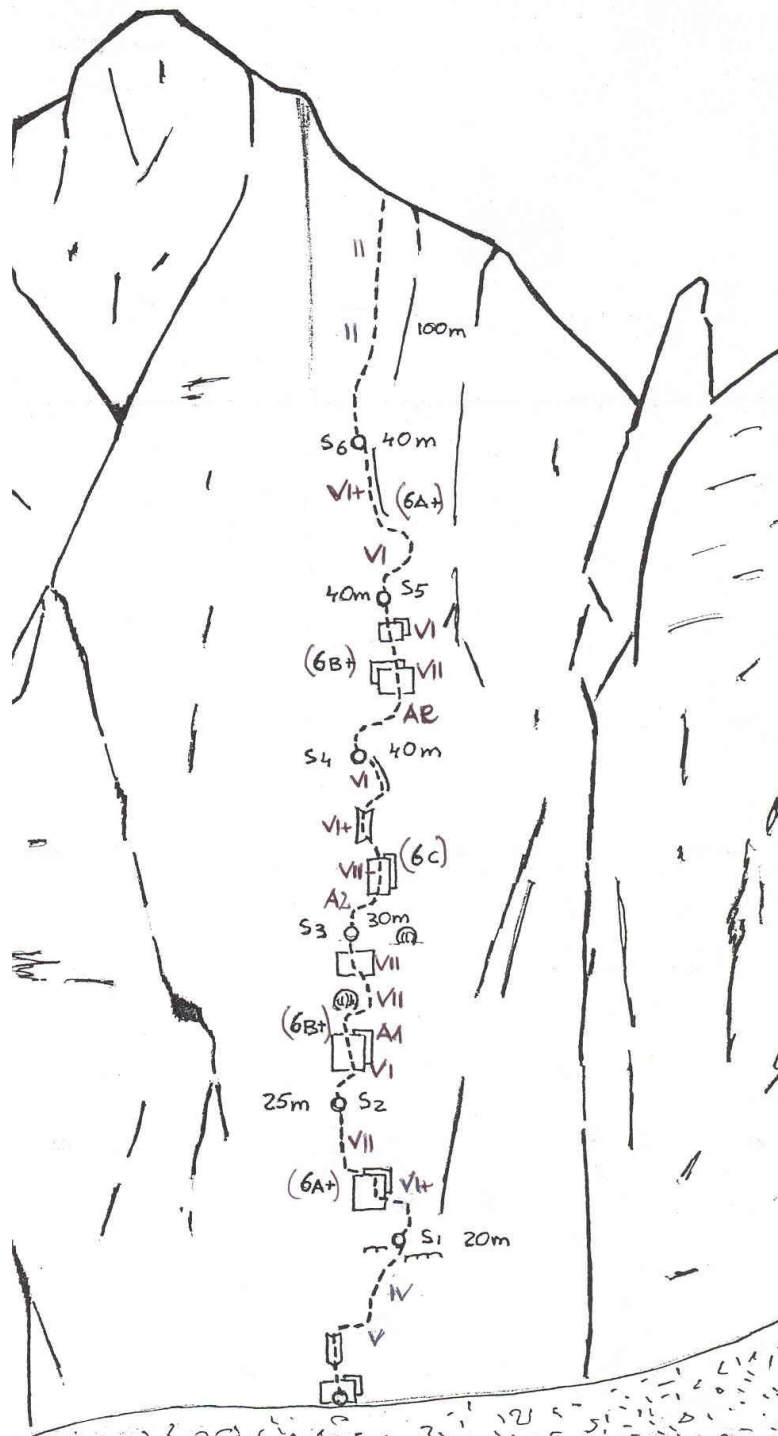 II
II
100m
S6 40m
VI+ (6A+)
VI
40m S5
VI
(6B+) VII
AE
S4 40m
VI
VI+
VII- (6C)
A2
30m
S3
VII
VII
(6B+) A1
VI
25m S2
VII
(6A+) VI+
S1 20m
IV
V